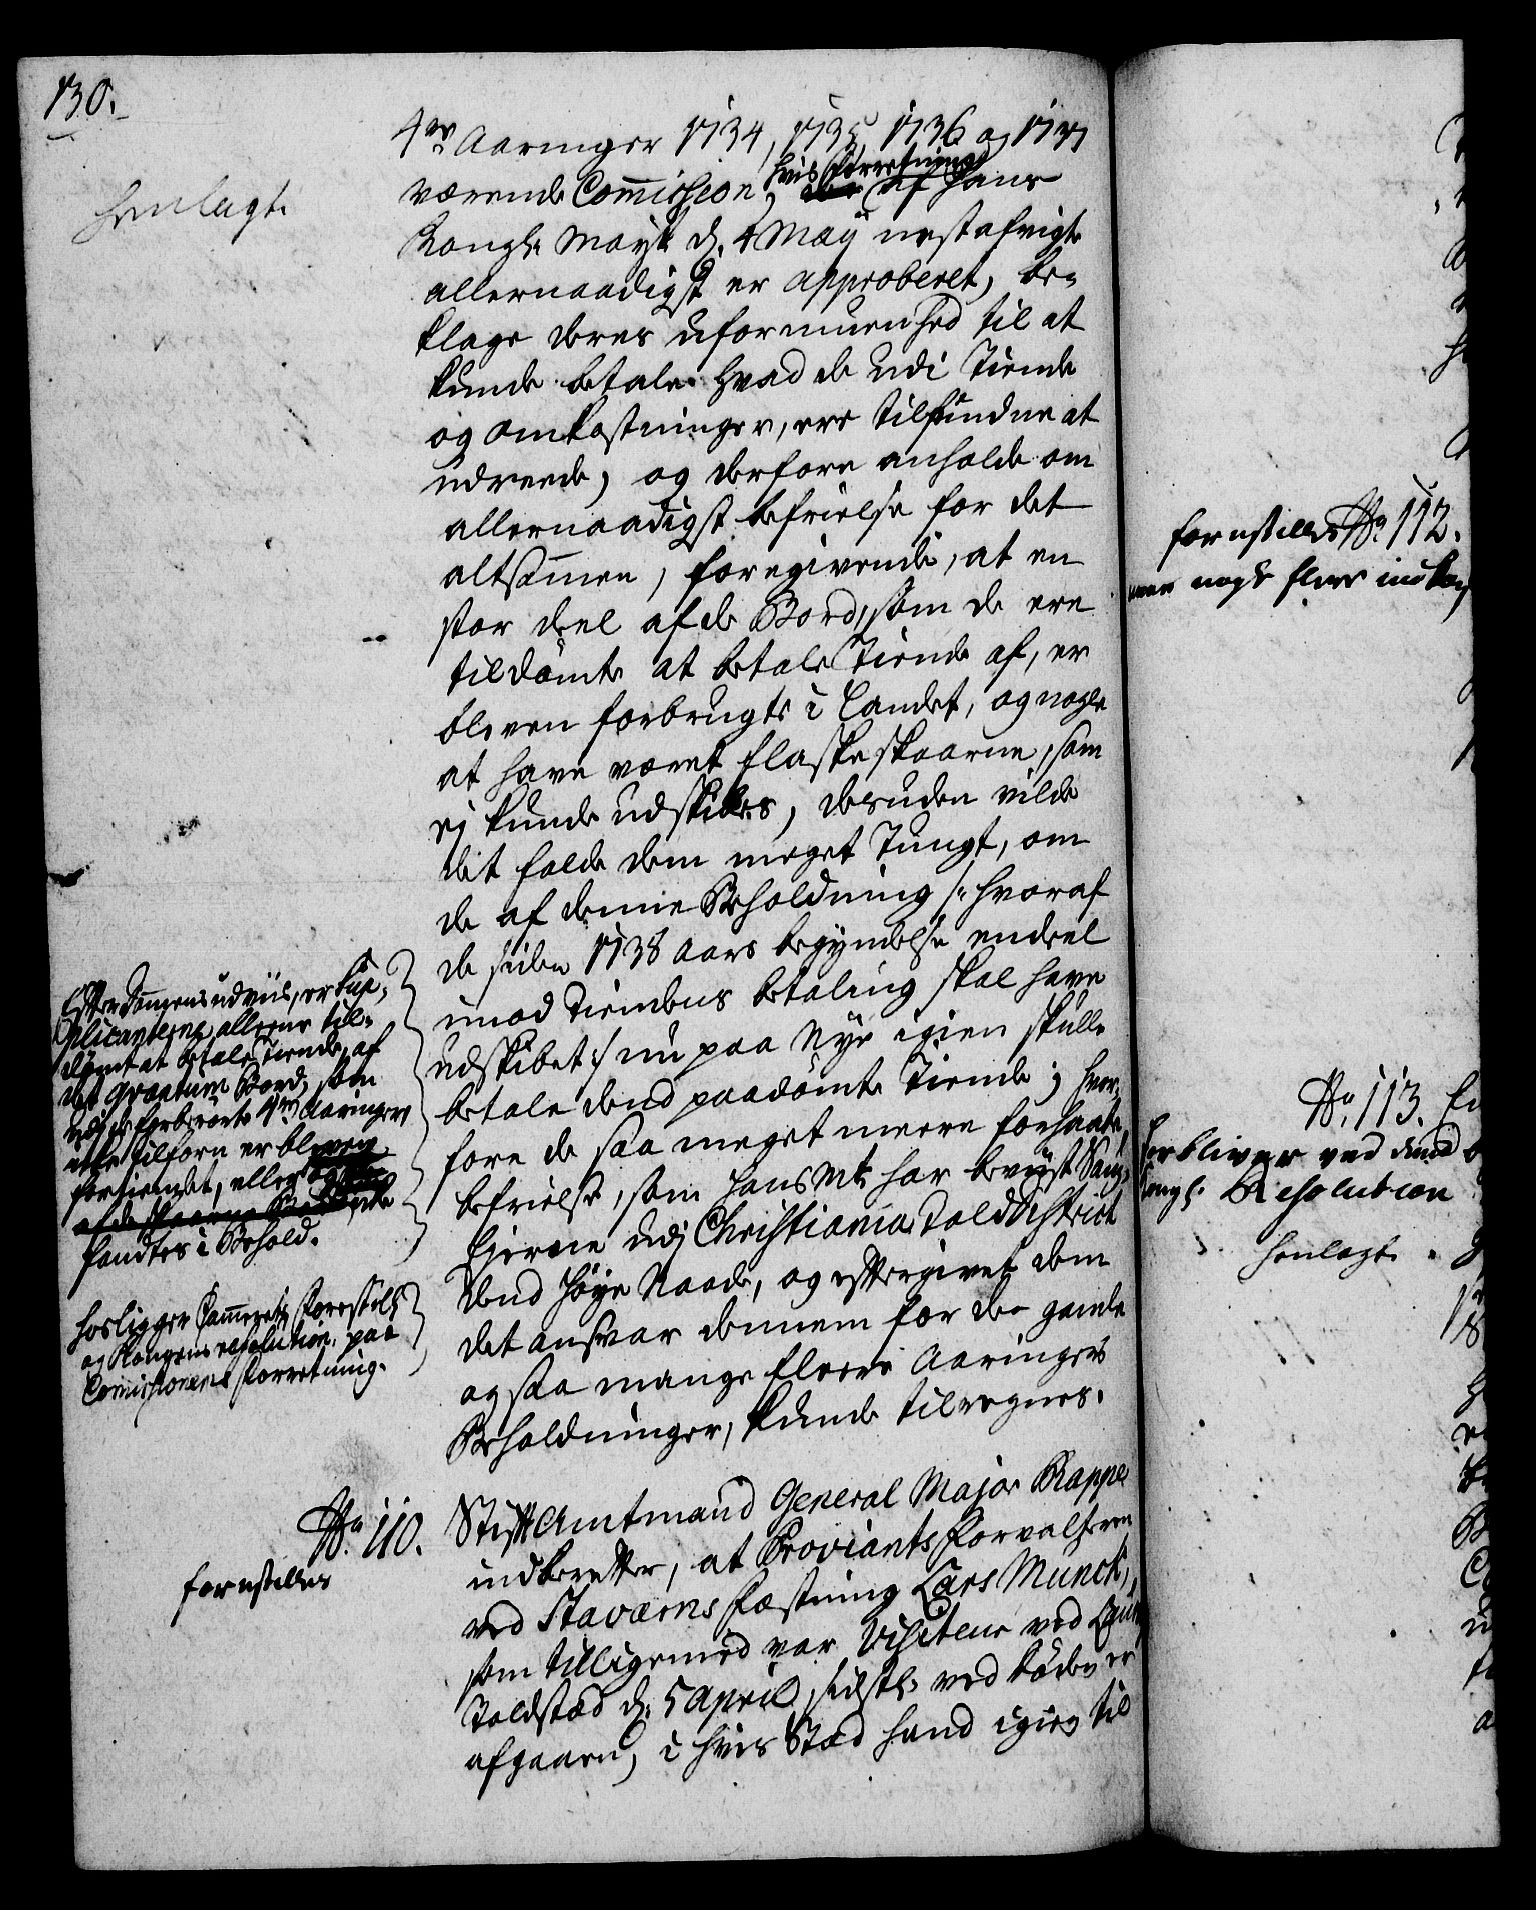 130.
henlagt.
4re Aaringer 1734, 1735, 1736 og 1737
værende Commission, hvis Forretning af Hans
Kongl: Mayt d. 4 Maÿ nestafvigte
allernaadigst er approberet, be-
klage deres uformuenhed til at
kunde betale hvad de udi Tiende
og omkostninger, ere tilfundne at
udreede, og derfore anholde om
allernaadigst befrielse for det
altsammen, foregivende, at en
stor deel af de Bord, som de ere
tildømte at betale Tiende af, er
bleven forbrugte i Landet, og nogle
at have været flaske skaarne, som
ej kunde udskibes, desuden vilde
det falde dem meget Tungt, om
de af denne Beholdning /: hvoraf
de siden 1738 Aars begyndelse endeel
imod Tiendens betaling skal have
udskibet :/ nu paa Nye igien skulle
betale dend paadømte Tiende; hvor-
fore de saa meget meere forhaabe
befrielse, som Hans Mt har beviist Saug-
Ejerne udj Christiania Told District
dend høye Naade, og eftergivet dem
det ansvar dennem for den gamle
og saa mange fleere Aaringers
Beholdninger, kunde tilregnes.
Efter Dommens udviis, er Sup-
plicanterne alleene till-
dømt at betale Tiende af
det qvantum Bord, som
udj de forberørte 4re Aaringer
icke tilforn er bleven
fortiendet, eller
fandtes i Behold.
Hosligger Cammerets Forestill:
og Kongens resolution paa
Commissionens Forretning.
No. 110.
forestilles
StiftAmtmand General Major Rappe
indberetter, at Proviants Forvalteren
ved Staværns Fæstning Lars Munck,
som tilligemed var Visiteur ved
Toldstæd d. 5 April sidstl: ved Døden er
afgaaen, i hvis Stæd hand igien til
forestilles No. 112.
nogle fleere
No. 113.
forbliver ved dend
Kongl: Resolution
henlagt.